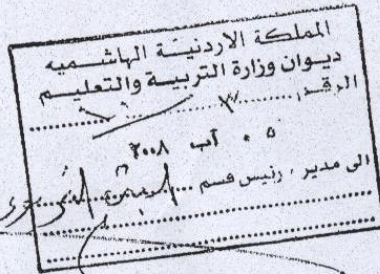 المملكة الاردنيـة الهاشـميه
ديـوان وزارة التربيـة والتعليـم
الرقـم
٠٥ آب ٢٠٠٨
الى مدير . رئيس قسم